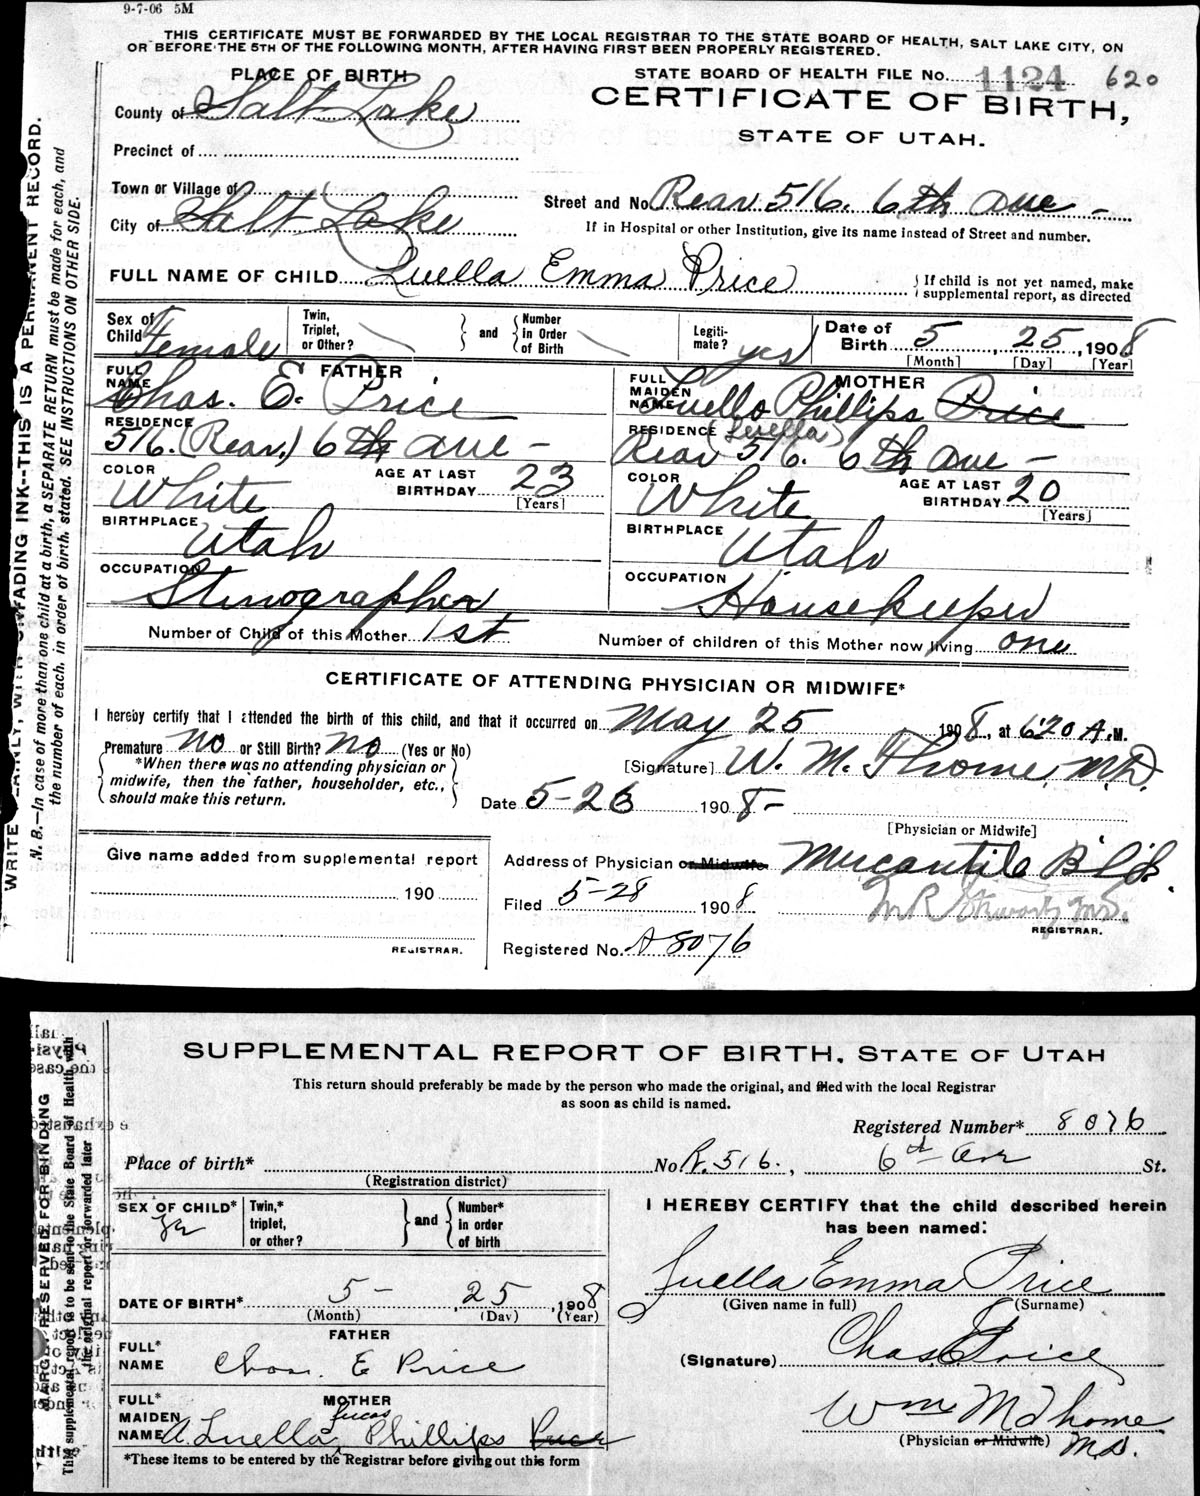 9-7-06 5M
THIS CERTIFICATE MUST BE FORWARDED BY THE LOCAL REGISTRAR TO THE STATE BOARD OF HEALTH, SALT LAKE CITY, ON
OR BEFORE THE 5TH OF THE FOLLOWING MONTH, AFTER HAVING FIRST BEEN PROPERLY REGISTERED.
PLACE OF BIRTH
STATE BOARD OF HEALTH FILE No. 1124 620
County of Salt Lake
CERTIFICATE OF BIRTH,
STATE OF UTAH.
Precinct of
Town or Village of
Street and No Rear 516. 6th ave -
City of Salt Lake
If in Hospital or other Institution, give its name instead of Street and number.
FULL NAME OF CHILD Luella Emma Price
If child is not yet named, make
supplemental report, as directed
Sex of Child Female
Twin, Triplet, or Other? and Number in Order of Birth
Legitimate? yes
Date of Birth 5, 25, 1908
[Month] [Day] [Year]
FATHER
FULL NAME Chas. E. Price
RESIDENCE 516. (Rear.) 6th ave -
COLOR White
AGE AT LAST BIRTHDAY 23
[Years]
BIRTHPLACE Utah
OCCUPATION Stenographer
MOTHER
FULL MAIDEN NAME Luello Phillips Price
(Luella)
RESIDENCE Rear 516. 6th ave -
COLOR White
AGE AT LAST BIRTHDAY 20
[Years]
BIRTHPLACE Utah
OCCUPATION Housekeeper
Number of Child of this Mother 1st
Number of children of this Mother now living one
CERTIFICATE OF ATTENDING PHYSICIAN OR MIDWIFE*
I hereby certify that I attended the birth of this child, and that it occurred on May 25 1908, at 6:20 A.M.
Premature no or Still Birth? no (Yes or No)
*When there was no attending physician or
midwife, then the father, householder, etc.,
should make this return.
[Signature] W. M. Thome, M.D.
Date 5-26 1908-
[Physician or Midwife]
Give name added from supplemental report
190
REGISTRAR.
Address of Physician or Midwife Mercantile Bld.
Filed 5-28 1908
REGISTRAR.
Registered No. A 8076
WRITE PLAINLY, WITH UNFADING INK--THIS IS A PERMANENT RECORD.
N. B.—In case of more than one child at a birth, a SEPARATE RETURN must be made for each, and
the number of each, in order of birth, stated. SEE INSTRUCTIONS ON OTHER SIDE.
SUPPLEMENTAL REPORT OF BIRTH, STATE OF UTAH
This return should preferably be made by the person who made the original, and filed with the local Registrar
as soon as child is named.
Registered Number* 8076
Place of birth* No R. 516., 6th Ave St.
(Registration district)
SEX OF CHILD*
Twin,* triplet, or other? and Number* in order of birth
I HEREBY CERTIFY that the child described herein
has been named:
Luella Emma Price
(Given name in full) (Surname)
DATE OF BIRTH* 5- , 25, 1908
(Month) (Day) (Year)
FATHER
FULL* NAME Chas. E Price
(Signature) Chas E Price
MOTHER
FULL* MAIDEN NAME A Luella Lucas Phillips Price
Wm M Thome
(Physician or Midwife) M.D.
*These items to be entered by the Registrar before giving out this form
MARGIN RESERVED FOR BINDING
This supplemental report is to be sent to the State Board of Health with
the original report or forwarded later